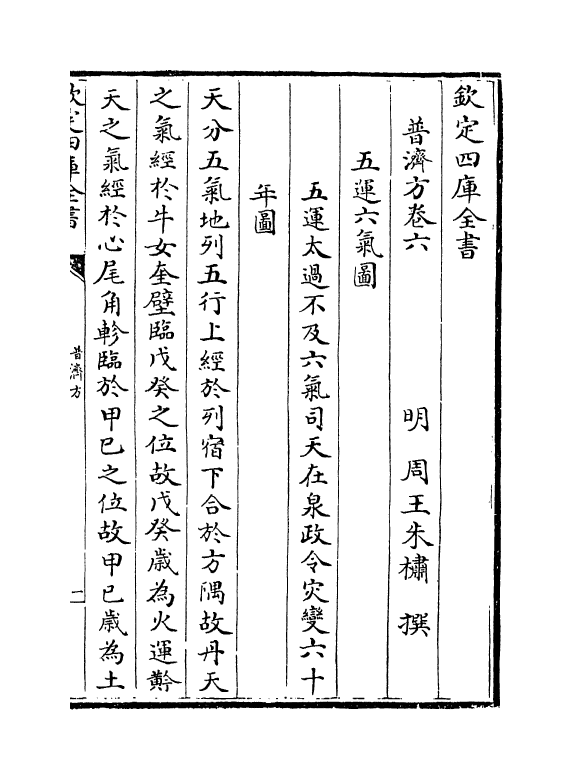 欽定四庫全書
普濟方卷六
明 周王朱橚 撰
五運六氣圖
五運太過不及六氣司天在泉政令灾變六十
年圖
天分五氣地列五行上經於列宿下合於方隅故丹天
之氣經於牛女奎壁臨戊癸之位故戊癸歲為火運黅
天之氣經於心尾角軫臨於甲巳之位故甲巳歲為土
欽定四庫全書
普濟方